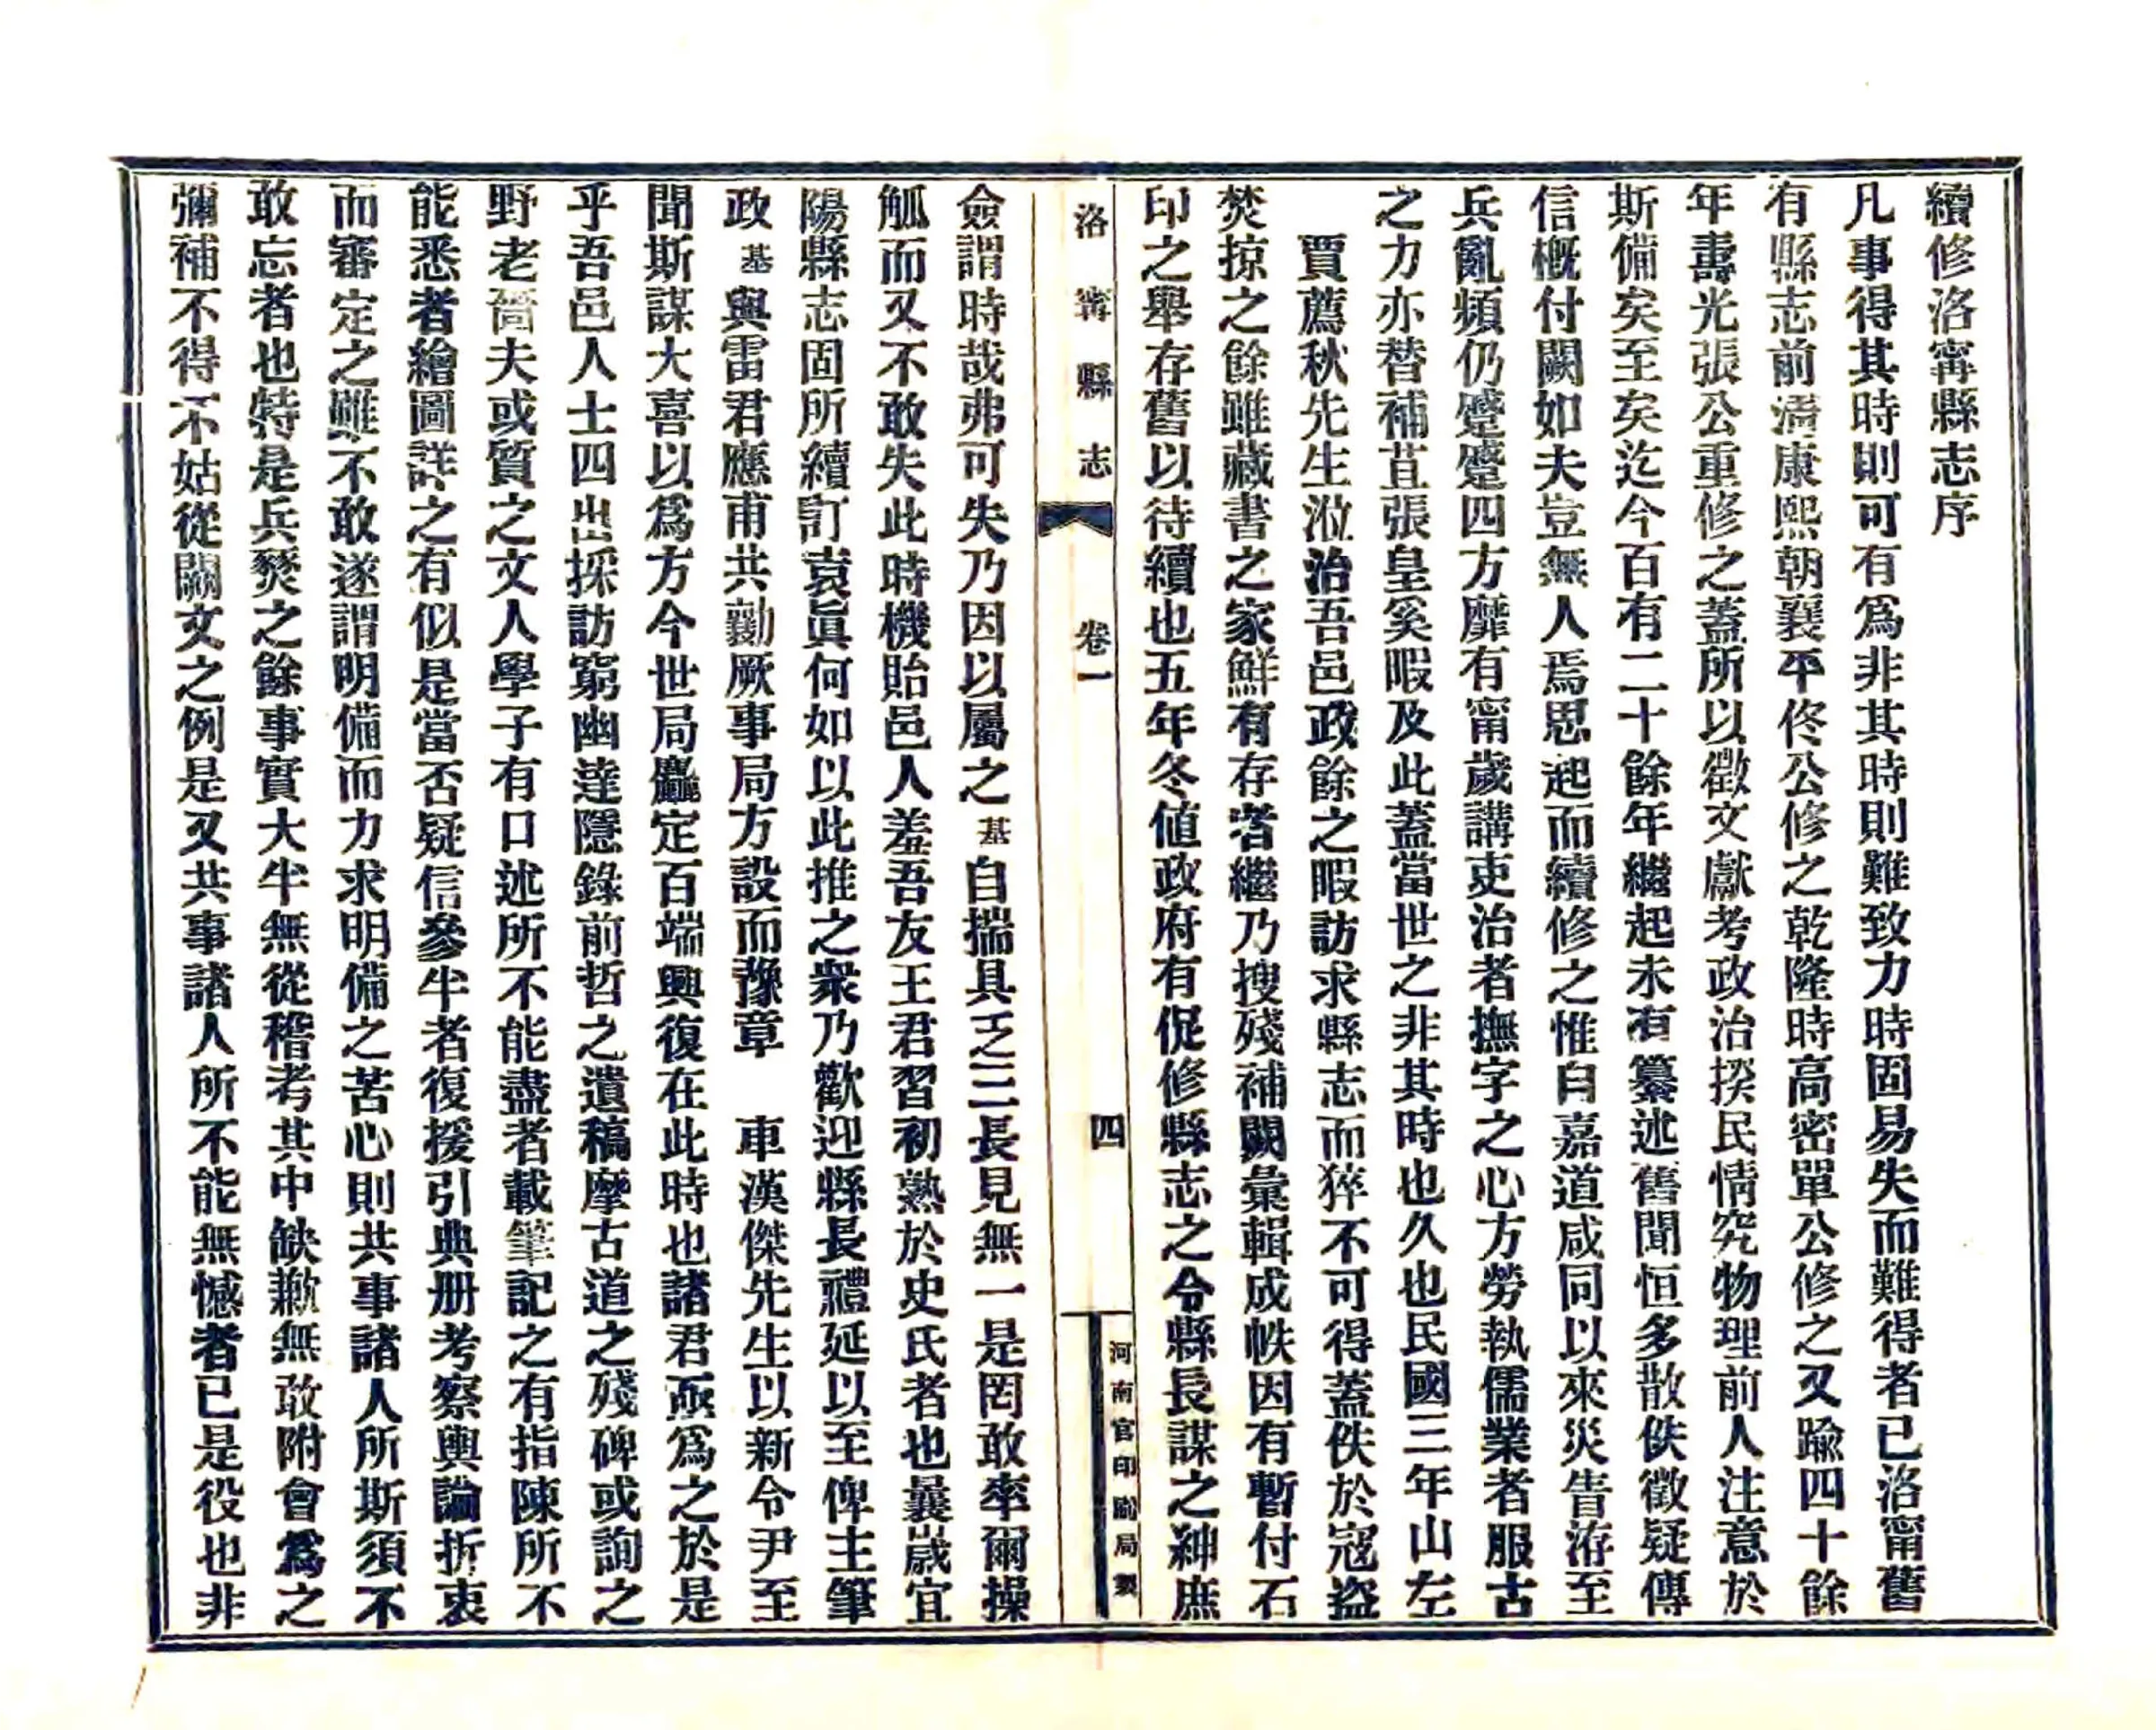 續修洛寗縣志序
凡事得其時則可有爲非其時則難致力時固易失而難得者已洛甯舊
有縣志前淸康熙朝襄平佟公修之乾隆時高密單公修之又踰四十餘
年壽光張公重修之蓋所以徵文獻考政治揆民情究物理前人注意於
斯備矣至矣迄今百有二十餘年繼起未有纂述舊聞恒多散佚徵疑傳
信槪付闕如夫豈無人焉思起而續修之惟自嘉道咸同以來災眚洊至
兵亂頻仍蹙蹙四方靡有甯歲講吏治者撫字之心方勞執儒業者服古
之力亦替補苴張皇奚暇及此蓋當世之非其時也久也民國三年山左
賈薦秋先生涖治吾邑政餘之暇訪求縣志而猝不可得蓋佚於寇盜
焚掠之餘雖藏書之家鮮有存者繼乃搜殘補闕彙輯成帙因有暫付石
印之舉存舊以待續也五年冬値政府有促修縣志之令縣長謀之紳庶
洛寗縣志
卷一
四
河南官印刷局製
僉謂時哉弗可失乃因以屬之基自揣具乏三長見無一是罔敢率爾操
觚而又不敢失此時機貽邑人羞吾友王君習初熟於史氏者也曩歲宜
陽縣志固所續訂袁眞何如以此推之衆乃歡迎縣長禮延以至俾主筆
政基與雷君應甫共勷厥事局方設而豫章 車漢傑先生以新令尹至
聞斯謀大喜以爲方今世局麤定百端興復在此時也諸君亟爲之於是
乎吾邑人士四出採訪窮幽達隱錄前哲之遺稿摩古道之殘碑或詢之
野老嗇夫或質之文人學子有口述所不能盡者載筆記之有指陳所不
能悉者繪圖詳之有似是當否疑信參半者復援引典册考察輿論折衷
而審定之雖不敢遂謂明備而力求明備之苦心則共事諸人所斯須不
敢忘者也特是兵燹之餘事實大半無從稽考其中缺歉無敢附會爲之
彌補不得不姑從闕文之例是又共事諸人所不能無憾者已是役也非